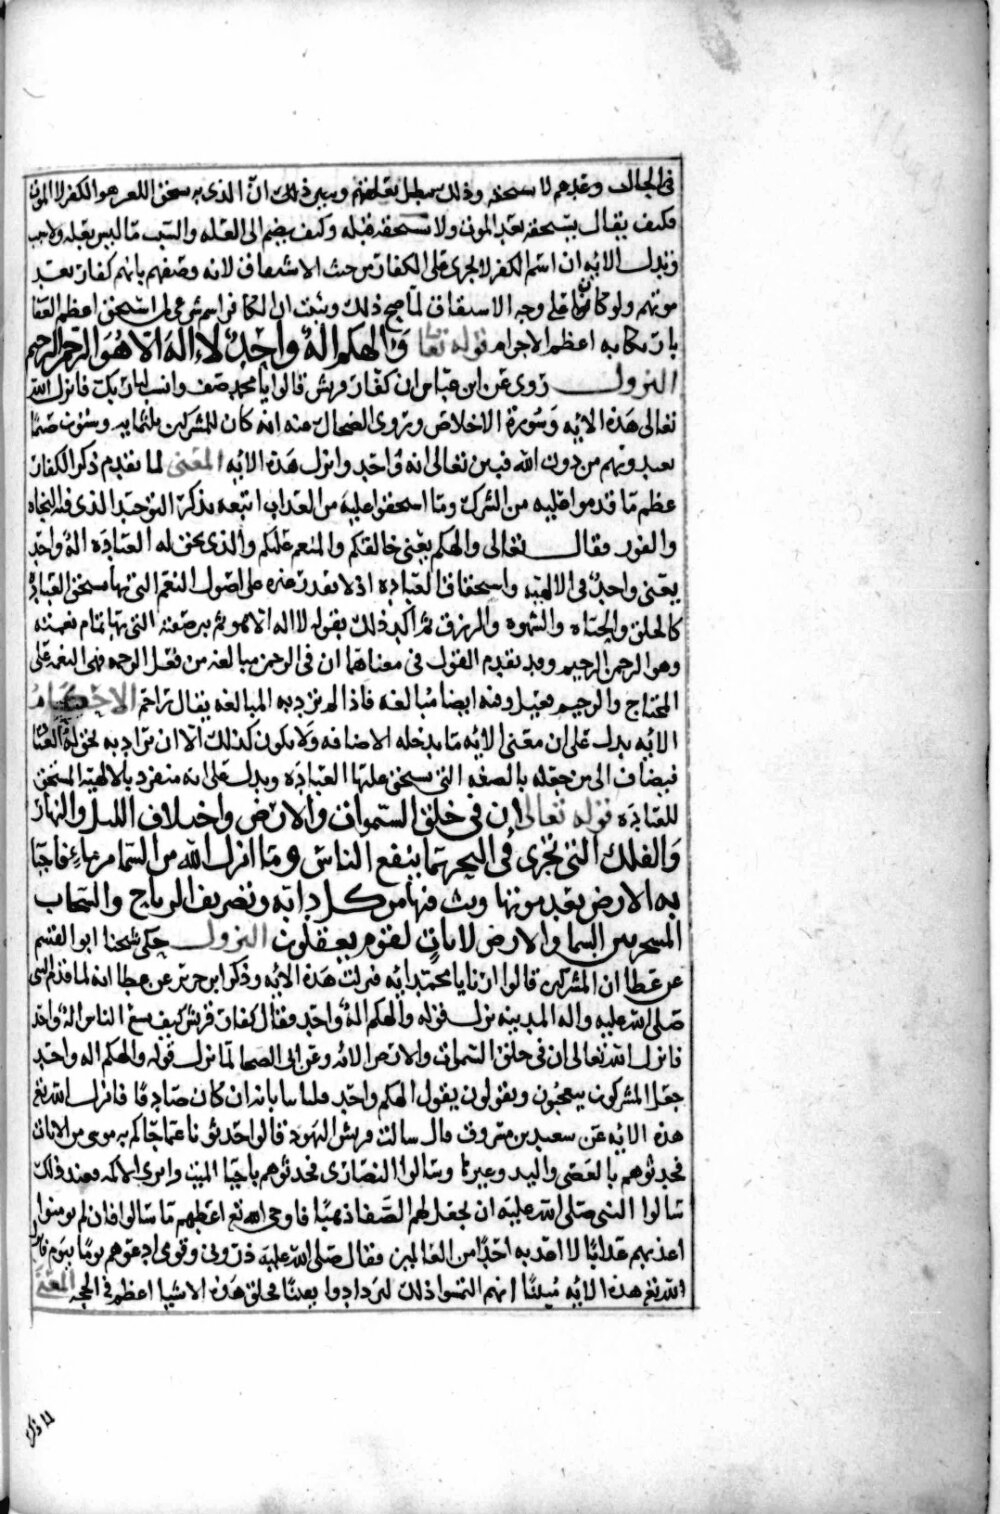 في الحال وغيرهم لا يستحقه وذلك يبطل تعلقهم ويبين ذلك ان الذي به يستحق اللعن هو الكفر لا الموت
فكيف يقال يستحقه بعد الموت ولا يستحقه قبله وكيف يضم الى العله والسبب ما ليس بعله ولا سبب
وتدل الايه ان اسم الكفر لا يجري على الكفار من حيث الاشتقاق لانه وصفهم بانهم كفار بعد
موتهم ولو كان على وجه الاشتقاق لما صح ذلك ويثبت ان الكافر اسم شرعي لمن استحق اعظم العقا
بارتكابه اعظم الاجرام قوله تعالى وَالهكم الهٌ واحِدٌ لا اله الا هُوَ الرحمن الرحيم
النزول روى عن ابن عباس ان كفار قريش قالوا يا محمد صف وانسب لنا ربك فانزل الله
تعالى هذه الايه وسورة الاخلاص وروى الضحاك عنه انه كان للمشركين ثلثمايه وستون صنمًا
يعبدونهم من دون الله فبين تعالى انه واحد وانزل هذه الايه المعنى لما تقدم ذكر الكفار
عظم ما قدموا عليه من الشرك وما استحقوا عليه من العذاب اتبعه بذكر التوحيد الذي فيه النجاه
والفوز فقال تعالى والهكم يعني خالقكم والمنعم عليكم والذي يحق له العباده الهٌ واحد
يعني واحدٌ في الالهيه واستحقاق العباده اذ لا يقدر غيره على اصول النعم التي بها يستحق العباده
كالخلق والحياه والشهوه والرزق ثم اكد ذلك بقوله لا اله الا هو ثم بين صفته التي بها تمام نعمته
وهو الرحمن الرحيم وقد تقدم القول في معناهما ان في الرحمن مبالغه من فعل الرحمه فهي النعمه على
المحتاج والرحيم فعيل وفيه ايضا مبالغه فاذا لم يرد به المبالغه يقال راحم الاحكام
الايه يدل على ان معنى الايه ما يدخله الاضافه ولا يكون كذلك الا ان يراد به يحق له العبا
فيضاف الى من جعله بالصفه التي يستحق عليها العباده ويدل على انه منفرد بالالهيه المستحق
للعباده قوله تعالى ان في خلق السموات والارض واختلاف الليل والنهار
وَالفلك التي تجري في البحر بما ينفع الناس وما انزل الله من السماء من ماءٍ فاحيا
به الارض بعد موتها وبث فيها من كل دابه وتصريف الرياح والسحاب
المسخر بين السما والارض لايات لقوم يعقلون النزول حكى شيخنا ابو القسم
عن عطا ان المشركين قالوا ارنا يا محمد ايه فنزلت هذه الايه وذكر ابن جرير عن عطا انه لما قدم النبي
صلى الله عليه واله المدينه نزل قوله والهكم الهٌ واحد فقال كفار قريش كيف يسع الناس الهٌ واحد
فانزل الله تعالى ان في خلق السموات والارض الايه وعن ابي الضحا لما نزل قوله والهكم اله واحد
جعل المشركون يعجبون ويقولون يقول الهكم واحد فلياتنا بايه ان كان صادقًا فانزل الله تع
هذه الايه عن سعيد بن مسروق قال سالت قريش اليهود فقالوا حدثونا عما جاكم به موسى من الايات
فحدثوهم بالعصى واليد وغيرها وسالوا النصارى فحدثوهم باحيا الميت وابرى الاكمه فعند ذلك
سالوا النبي صلى الله عليه ان يجعل لهم الصفا ذهبًا فاوحى الله تع اعطيهم ما سالوا فان لم يومنوا
اعذبهم عذابًا لا اعذبه احدًا من العالمين فقال صلى الله عليه ذروني وقومي ادعوهم يومًا بيوم فانزل
الله تع هذه الايه مبينًا انهم التمسوا ذلك ليزدادوا يقينًا فخلق هذه الاشيا اعظم في الحجه المعنى
لما ذكر